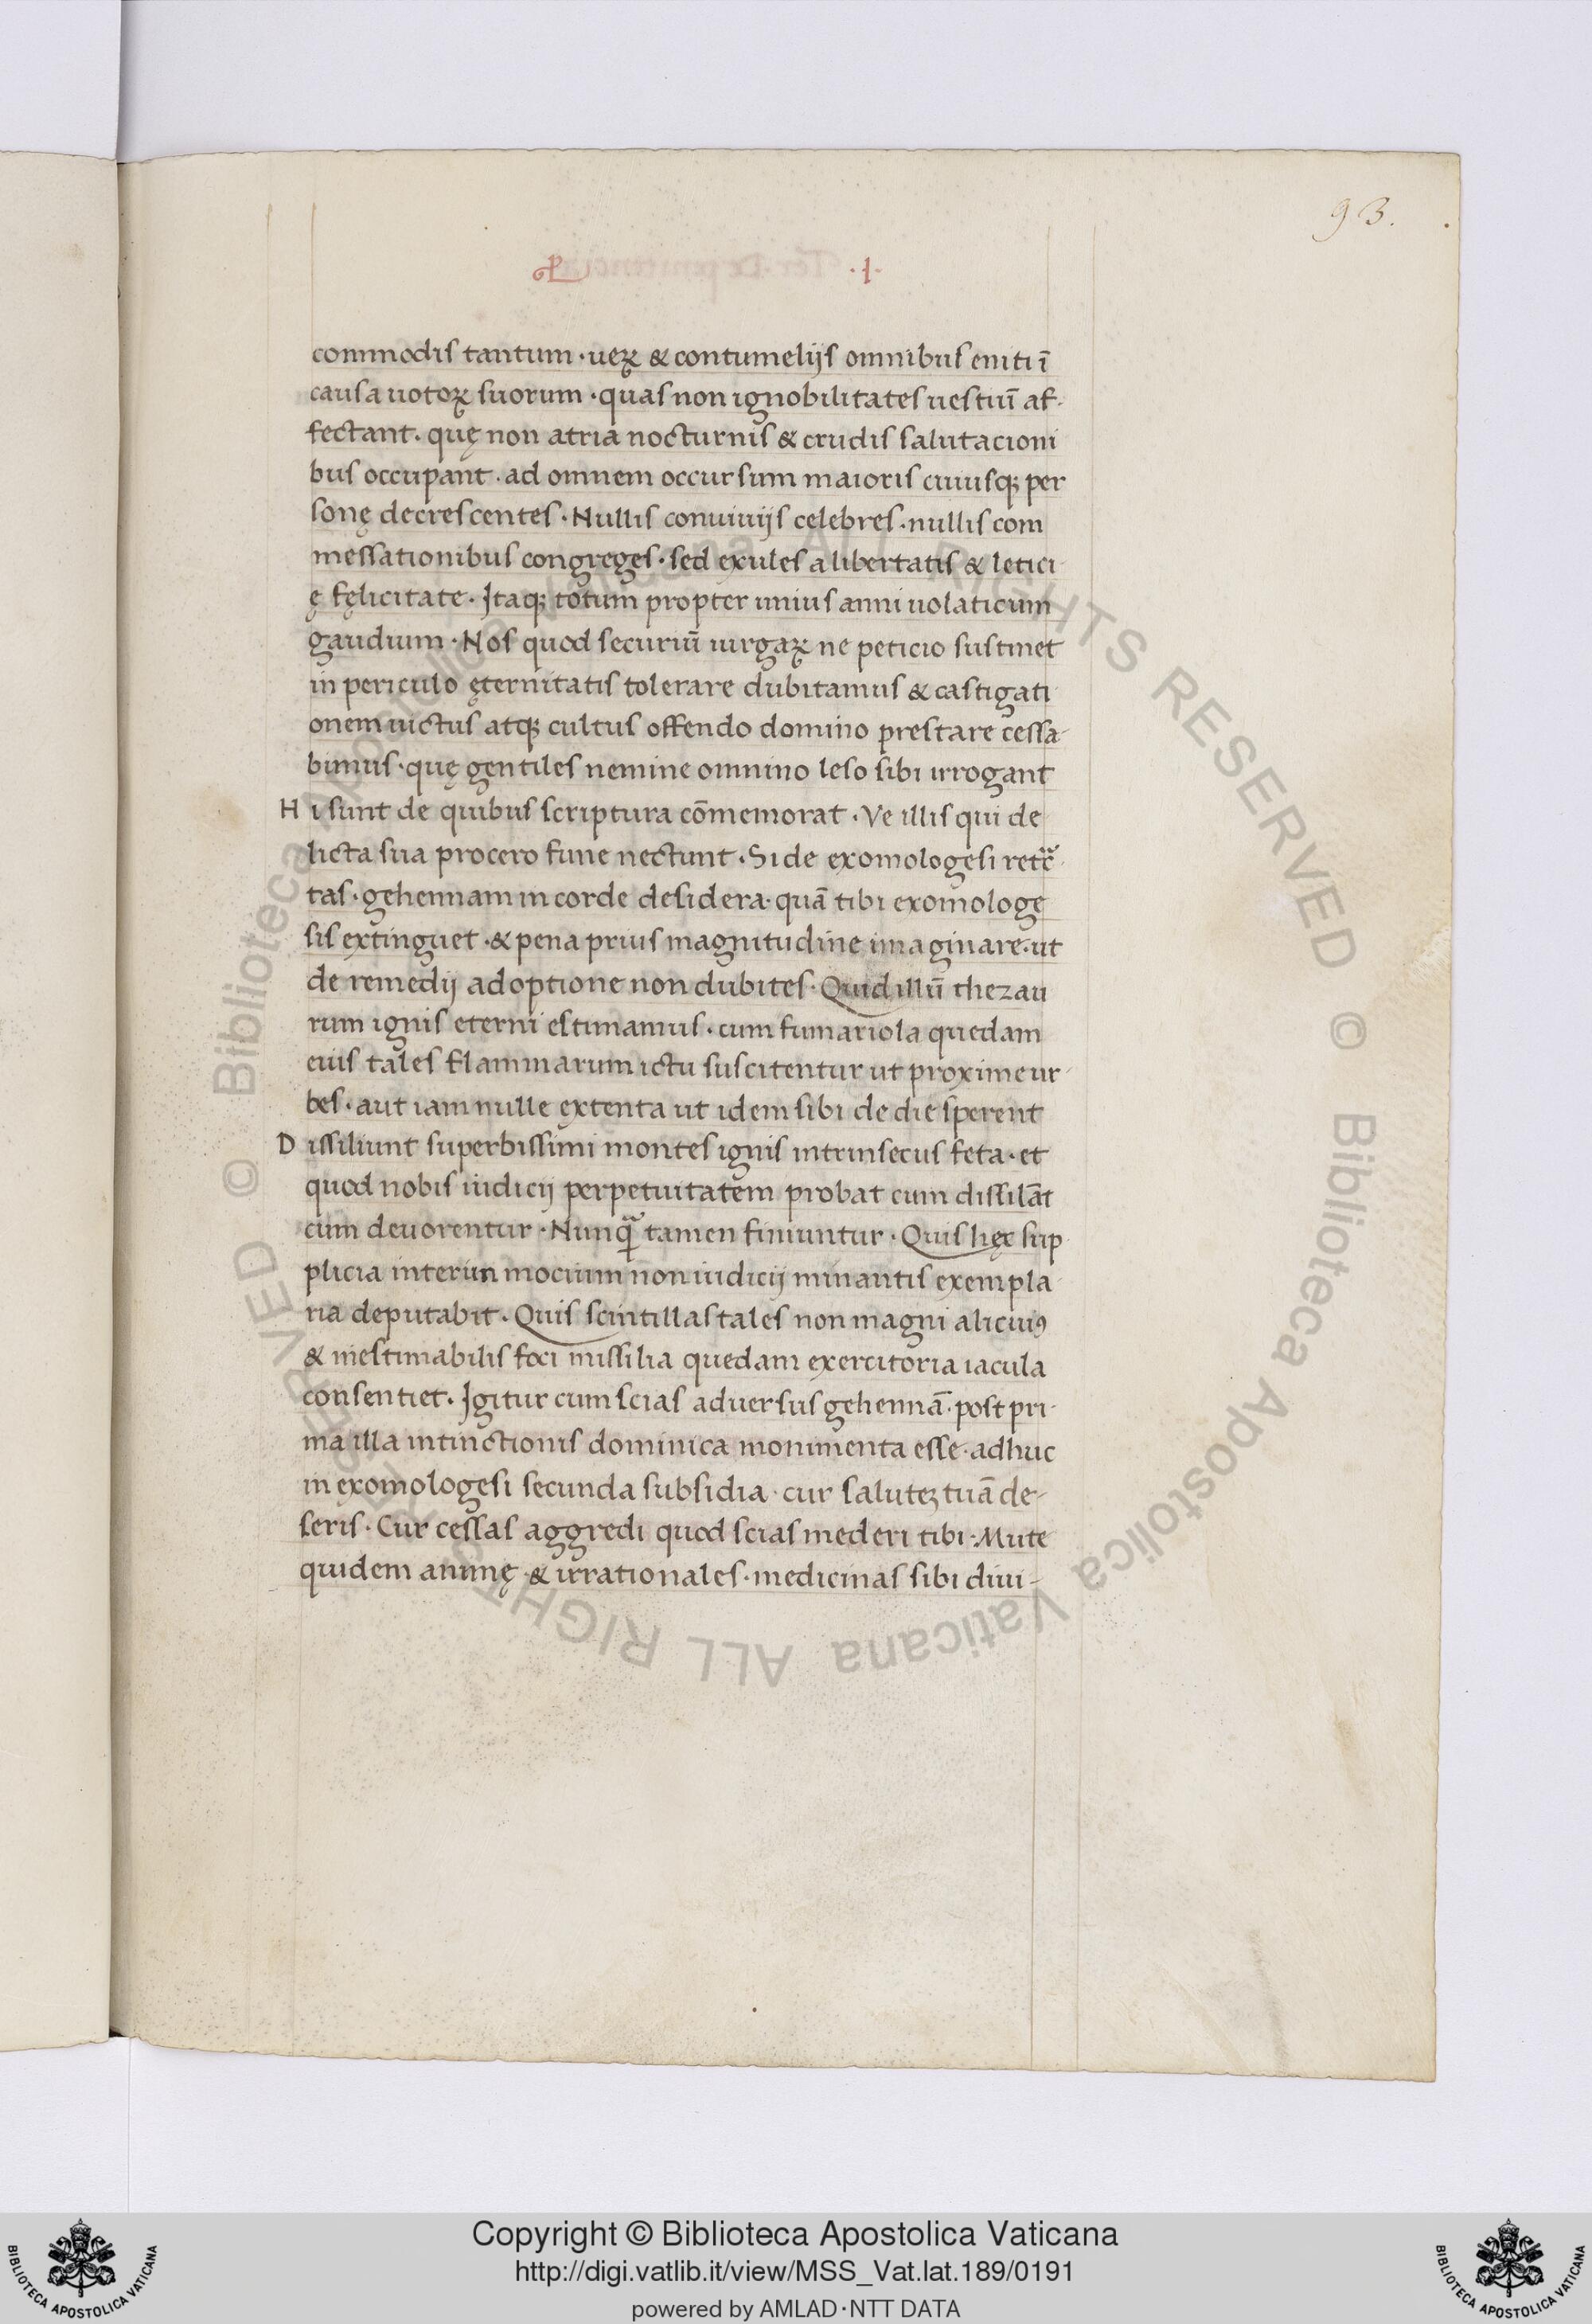 93.
·I·
commodis tantum · ueꝝ & contumelijs omnibus eniti ī
causa uotoꝝ suorum · quas non ignobilitates uestiū af-
fectant · quę non atria nocturnis & crudis salutacioni
bus occupant · ad omnem occursum maioris cuiusqꝫ per
sonę decrescentes · Nullis conuiuijs celebres · nullis com
messationibus congreges · sed exules a libertatis & letici
ę fęlicitate · Itaqꝫ totum propter unius anni uolaticum
gaudium · Nos quod securiū uirgaꝝ ne peticio sustinet
in periculo ęternitatis tolerare dubitamus & castigati
onem uictus atqꝫ cultus offendo domino prestare cessa-
bimus · quę gentiles nemine omnino leso sibi irrogant
Hi sunt de quibus scriptura cōmemorat · Ve illis qui de
licta sua procero fune nectunt · Si de exomologesi
tas · gehennam in corde desidera · quā tibi exomologe
sis extinguet · & pena prius magnitudine imaginare · ut
de remedij adoptione non dubites · Quid illū thezau
rum ignis eterni estimamus · cum fumariola quedam
eius tales flammarum ictu suscitentur ut proxime ur
bes · aut iam nulle extenta ut idem sibi de die sperent
Dissiliunt superbissimi montes ignis intrinsecus feta · et
quod nobis iudicij perpetuitatem probat cum dissilāt
cum deuorentur · Nunqᷓ tamen finiuntur · Quis hęc sup
plicia interim mocium non iudicij minantis exempla
ria deputabit · Quis scintillas tales non magni alicuiꝰ
& inestimabilis foci missilia quedam exercitoria iacula
consentiet · Igitur cum scias aduersus gehennā · post pri-
ma illa intinctionis dominica monimenta esse · adhuc
in exomologesi secunda subsidia · cur saluteꝫ tuā de-
seris · Cur cessas aggredi quod scias mederi tibi · Mute
quidem animę · & irrationales · medicinas sibi diui-
Copyright © Biblioteca Apostolica Vaticana
http://digi.vatlib.it/view/MSS_Vat.lat.189/0191
powered by AMLAD·NTT DATA
BIBLIOTECA APOSTOLICA VATICANA
BIBLIOTECA APOSTOLICA VATICANA
© Biblioteca Apostolica Vaticana ALL RIGHTS RESERVED © Biblioteca Apostolica Vaticana ALL RIGHTS RESERVED